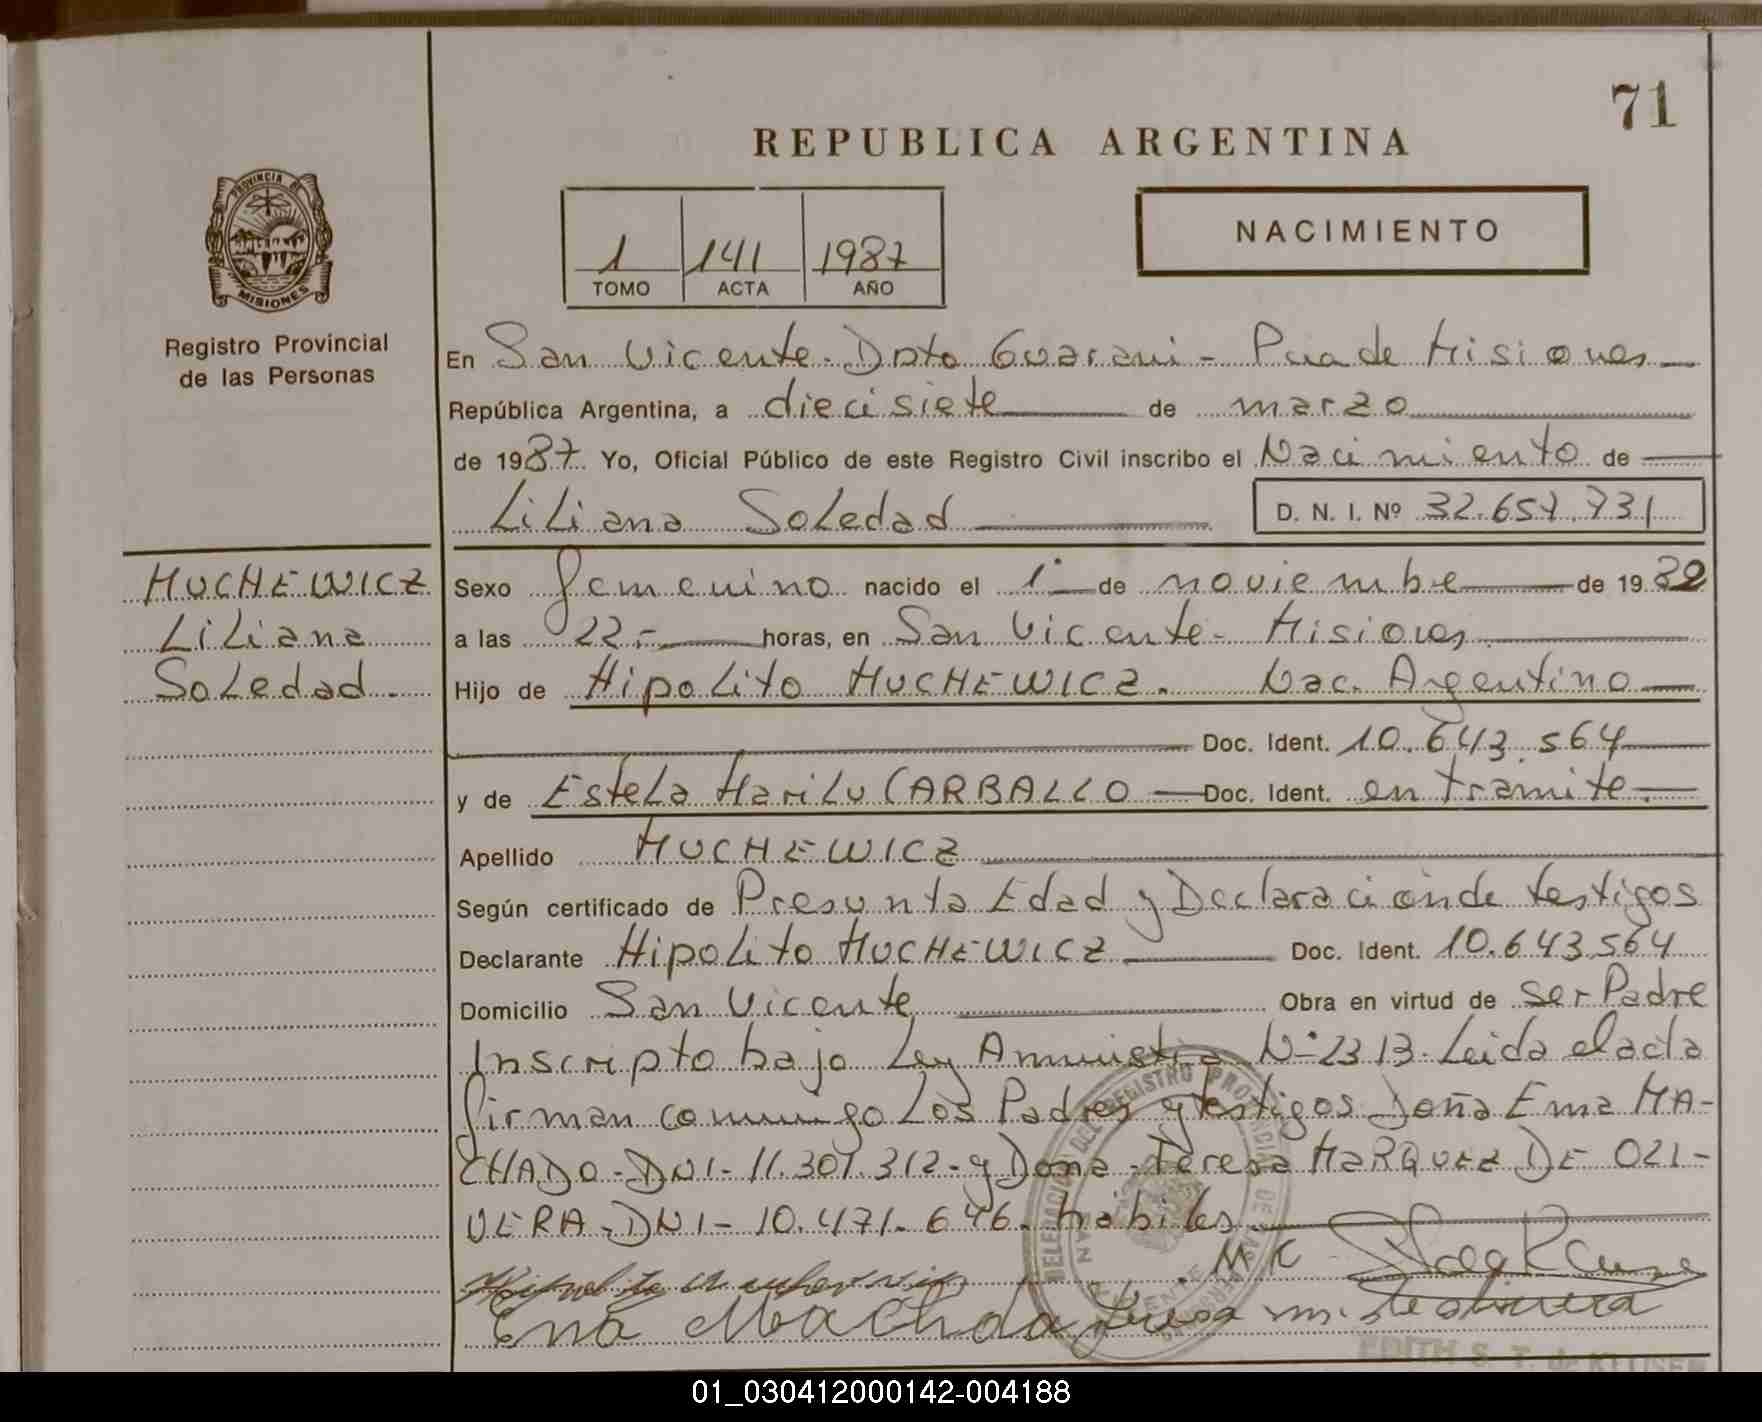 71
REPUBLICA ARGENTINA
PROVINCIA DE
MISIONES
Registro Provincial
de las Personas
1 141 1987
TOMO ACTA AÑO
NACIMIENTO
En San Vicente - Dpto Guarani - Pcia de Misiones
República Argentina, a diecisiete de marzo
de 1987 Yo, Oficial Público de este Registro Civil inscribo el Nacimiento de
Liliana Soledad D. N. I. Nº 32.657.731
MUCHEWICZ
Liliana
Soledad
Sexo femenino nacido el 1° de noviembre de 1982
a las 22.- horas, en San Vicente - Misiones
Hijo de Hipolito MUCHEWICZ. Nac. Argentino
Doc. Ident. 10.643.564
y de Estela Marilu CARBALLO Doc. Ident. en tramite.
Apellido MUCHEWICZ
Según certificado de Presunta Edad y Declaracion de testigos
Declarante Hipolito MUCHEWICZ Doc. Ident. 10.643.564
Domicilio San Vicente Obra en virtud de ser Padre
Inscripto bajo Ley Amnistia N° 2313. Leida el acta
firman conmigo Los Padres y testigos Doña Ema MA-
CHADO - DNI - 11.301.312 - y Dona Teresa MARQUEZ DE OLI-
VERA - DNI - 10.471.646. habiles.
M K
Ema Machado Teresa m. de olivera
DELEGACION DEL REGISTRO PROVINCIAL DE LAS PERSONAS
SAN VICENTE
EDITH S. T. de KLUSE
01_030412000142-004188